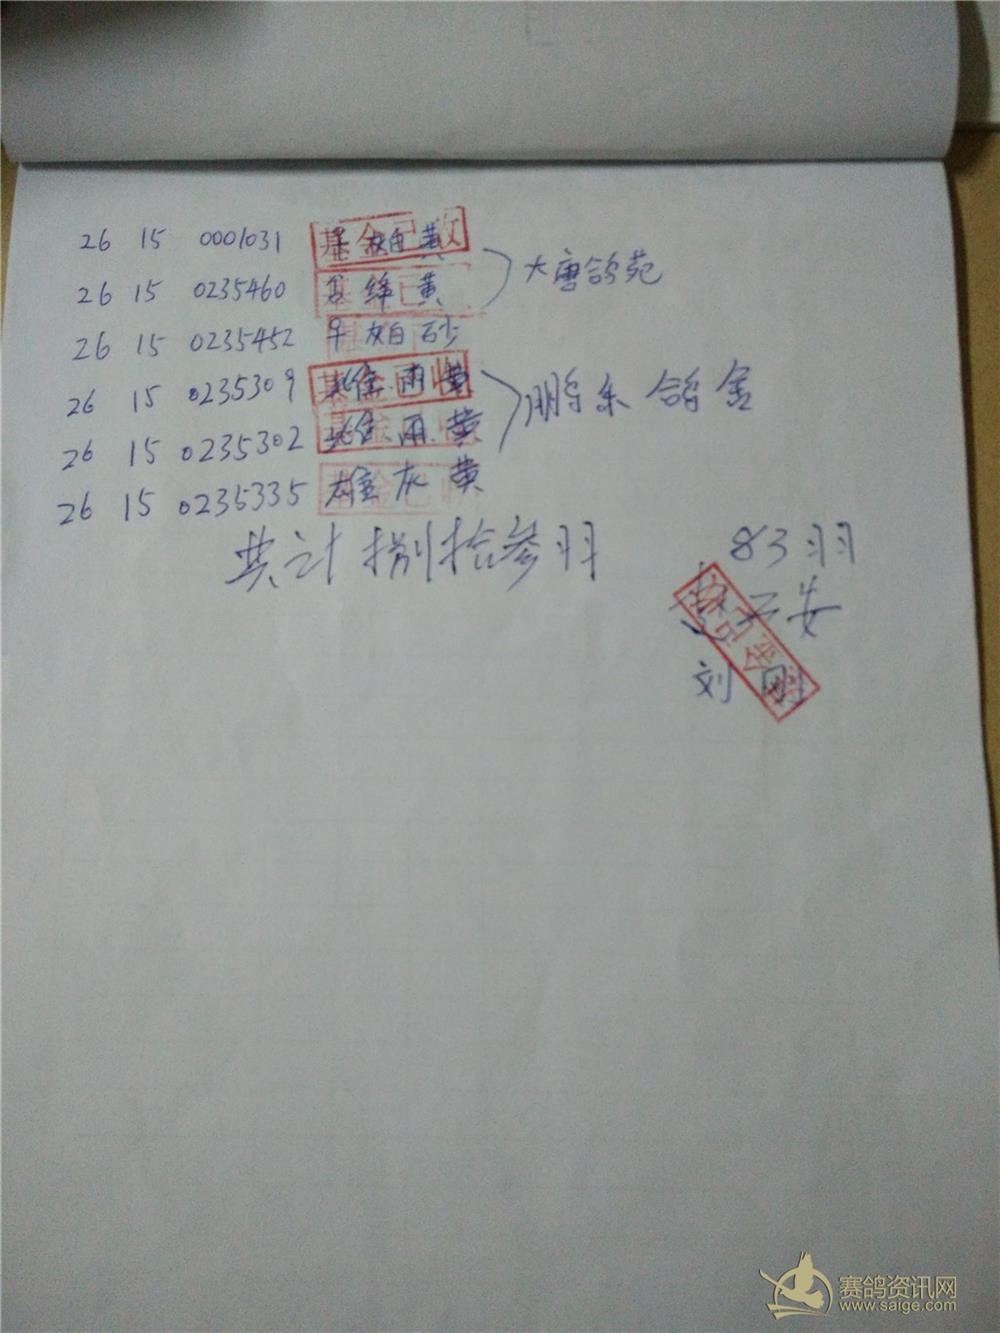 26 15 0001031 黄
26 15 0235460 绛 黄 大唐鸽苑
26 15 0235452 砂
26 15 0235309 雨 黄
26 15 0235302 雨 黄 鸽舍
26 15 0235335 雄 灰 黄
共计 捌拾参羽 83羽
安
刘 刚
赛鸽资讯网
www.saige.com